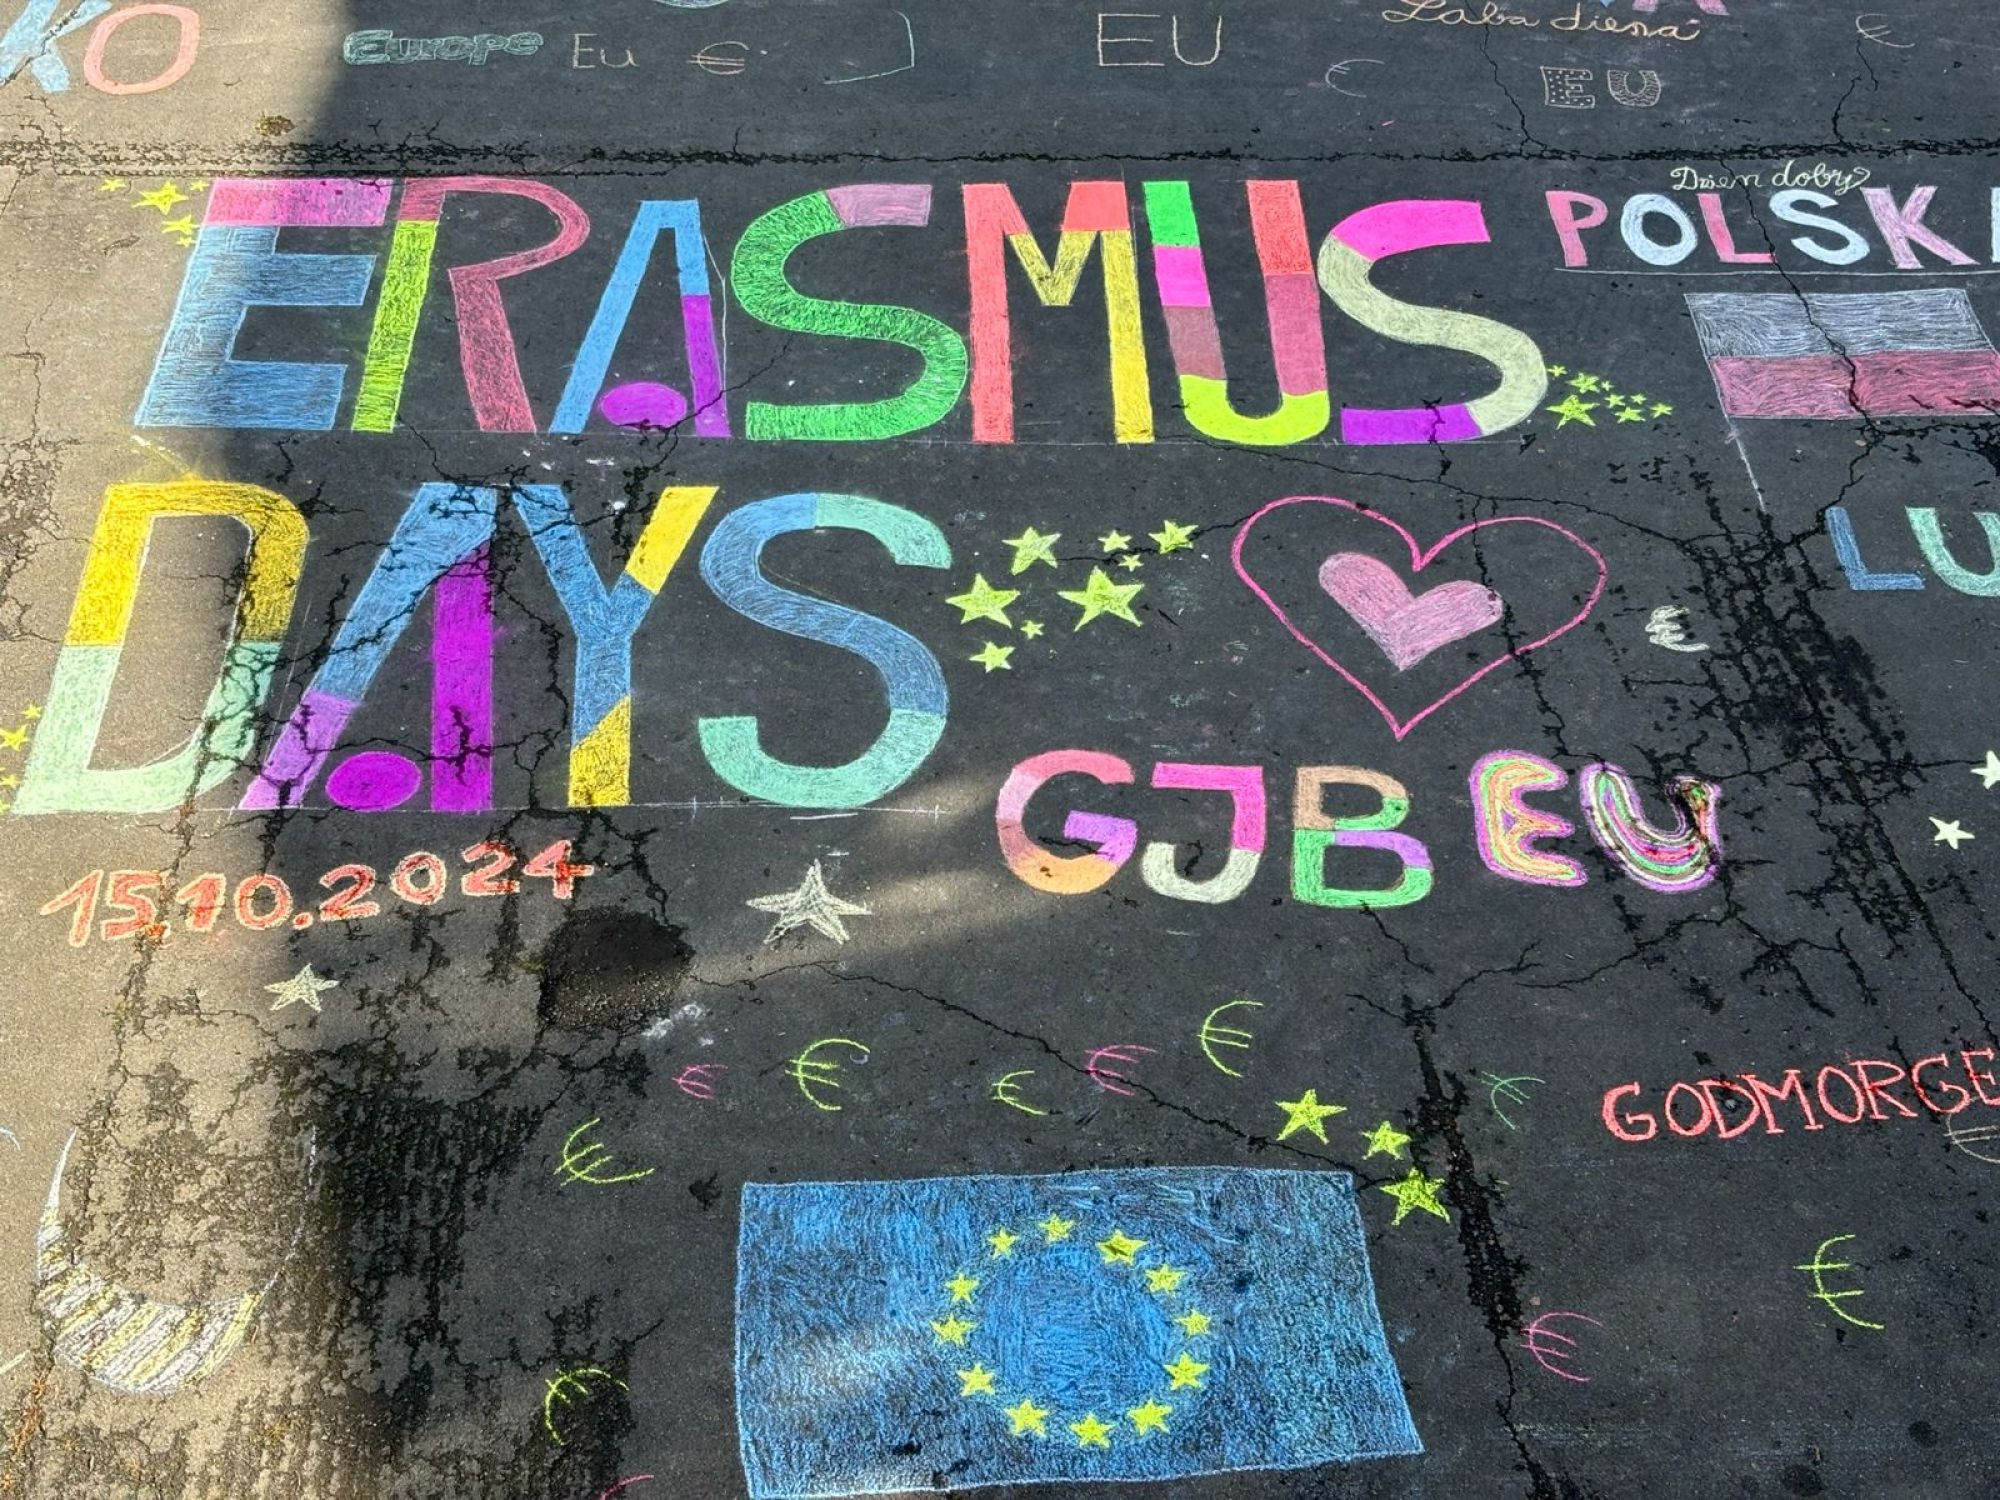 KO
Europe Eu €
EU
Laba diena
€ EU €
ERASMUS
Dzien dobry
POLSKA
DAYS
LU
€
GJB EU
15.10.2024
€ € € € € €
GODMORGE
€
€
€
€
€